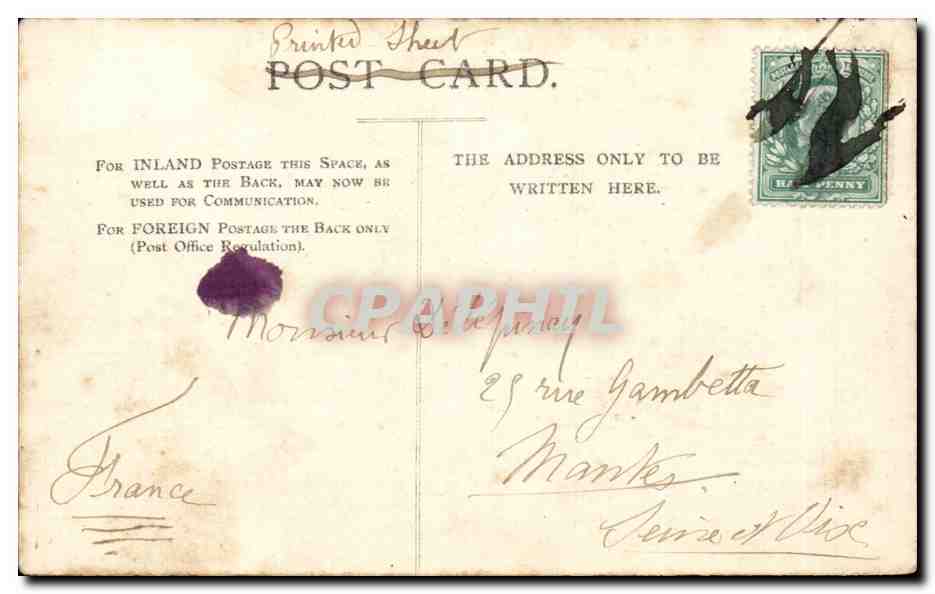 Printed Sheet
POST CARD.
FOR INLAND POSTAGE THIS SPACE, AS
WELL AS THE BACK, MAY NOW BE
USED FOR COMMUNICATION.
FOR FOREIGN POSTAGE THE BACK ONLY
(POST OFFICE REGULATION).
THE ADDRESS ONLY TO BE
WRITTEN HERE.
HALF PENNY
CPAPHIL
Monsieur
25 rue Gambetta
Mantes.
Seine et Oise
France